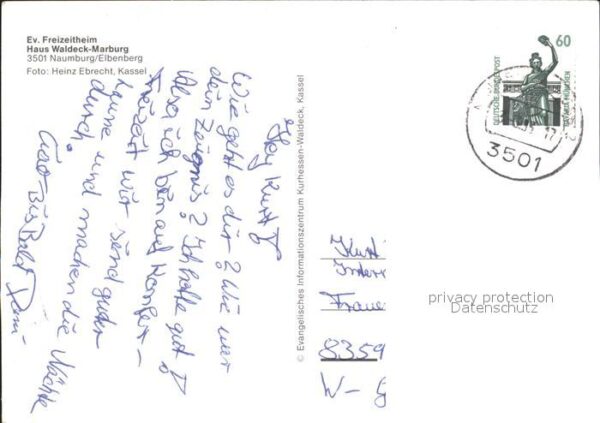 Ev. Freizeitheim
Haus Waldeck-Marburg
3501 Naumburg/Elbenberg
Foto: Heinz Ebrecht, Kassel
Hey Kurt!
Wie geht es dir? Wie war
dein Zeugnis? Ich hoffe gut!
Also ich bin auf Konfer-
Freizeit wir sind guter
Laune und machen die Nächte
durch.
Ciao-Bis Bald
© Evangelisches Informationszentrum Kurhessen-Waldeck, Kassel
60
DEUTSCHE BUNDESPOST
BAVARIA MÜNCHEN
3501
Kurt
Frau
8359
W-
privacy protection
Datenschutz